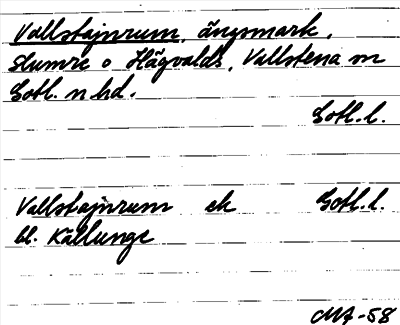 Vallstajnrum, ängsmark,
Slumre o Hägvalds, Vallstena sn
Gotl. n. hd.
Gotl. l.
Vallstajnrum ek Gotl. l.
bl. Källunge
MA-58